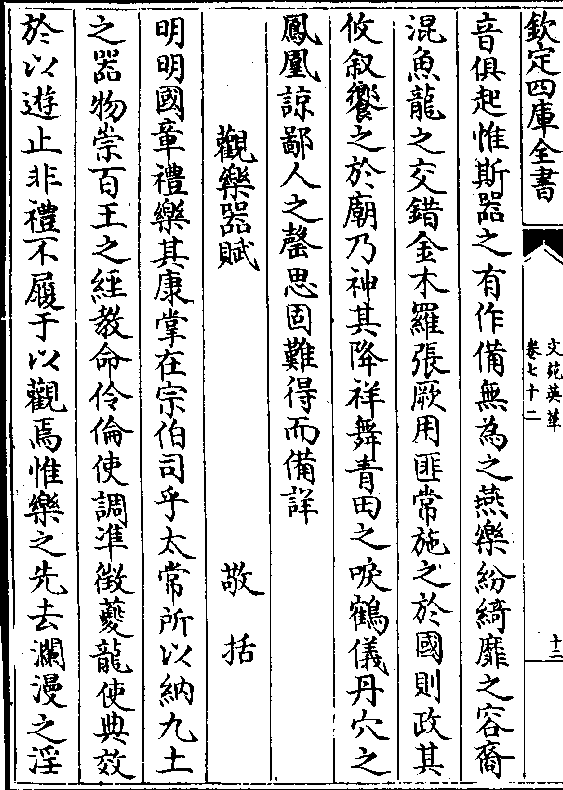 欽定四庫全書
文苑英華
卷七十二
十二
音俱起惟斯器之有作備無為之燕樂紛綺靡之容裔
混魚龍之交錯金木羅張厥用匪常施之於國則政其
攸叙饗之於廟乃神其降祥舞青田之唳鶴儀丹穴之
鳳凰諒鄙人之罄思固難得而備詳
觀樂器賦
敬括
明明國章禮樂其康掌在宗伯司乎太常所以納九土
之器物崇百王之經教命伶倫使調準徵夔龍使典效
於以遊止非禮不履于以觀焉惟樂之先去瀾漫之淫